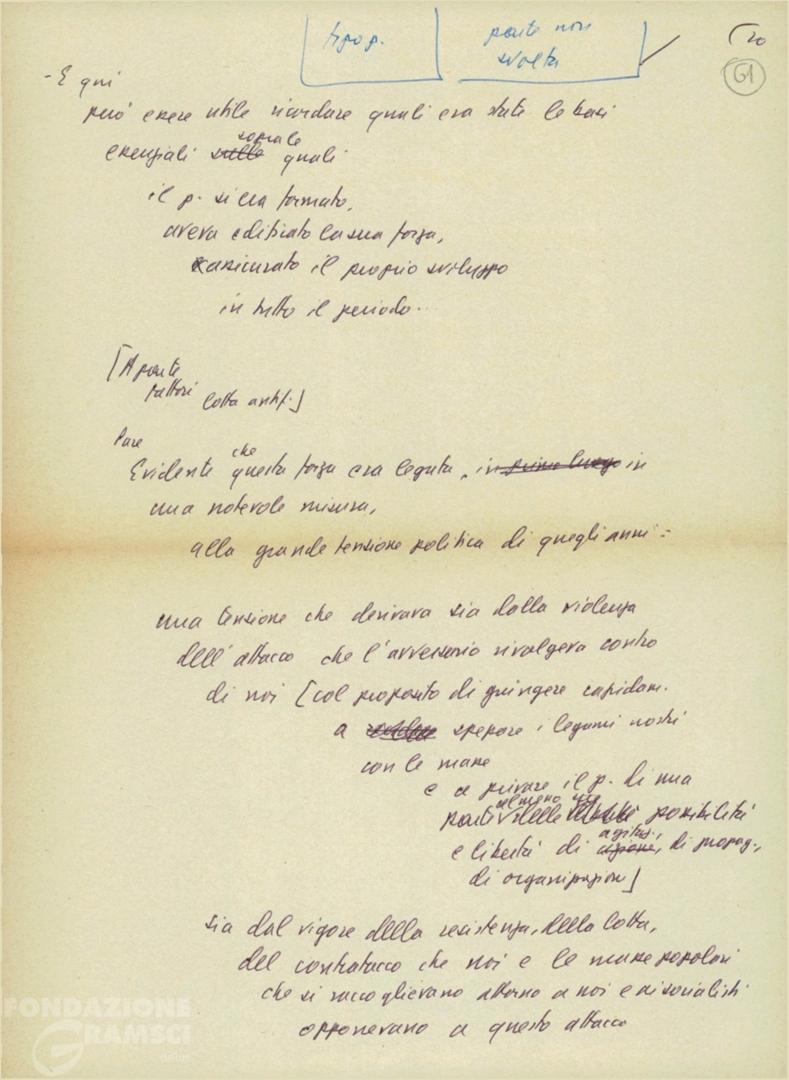 tipop.
parte non
svolta
20
61
- E qui
può essere utile ricordare quali era state le basi
sopra le
essenziali sulle quali
il p. si era formato,
aveva edificato la sua forza,
assicurato il proprio sviluppo
in tutto il periodo...
[A parte
fattori
lotta antif.]
Pare
che
Evidente questa forza era legata, in primo luogo in
una notevole misura,
alla grande tensione politica di quegli anni:
una tensione che derivava sia dalla violenza
dell'attacco che l'avversario rivolgeva contro
di noi [col proposito di giungere rapidam.
a spezzare i legami nostri
con le masse
e a privare il p. di una
almeno
parte delle possibilità
agitaz.,
e libertà di azione, di propag.,
di organizzazion]
sia dal vigore della resistenza, della lotta,
del contrattacco che noi e le masse popolari
che si raccoglievano attorno a noi e ai socialisti
opponevano a questo attacco
FONDAZIONE
GRAMSCI